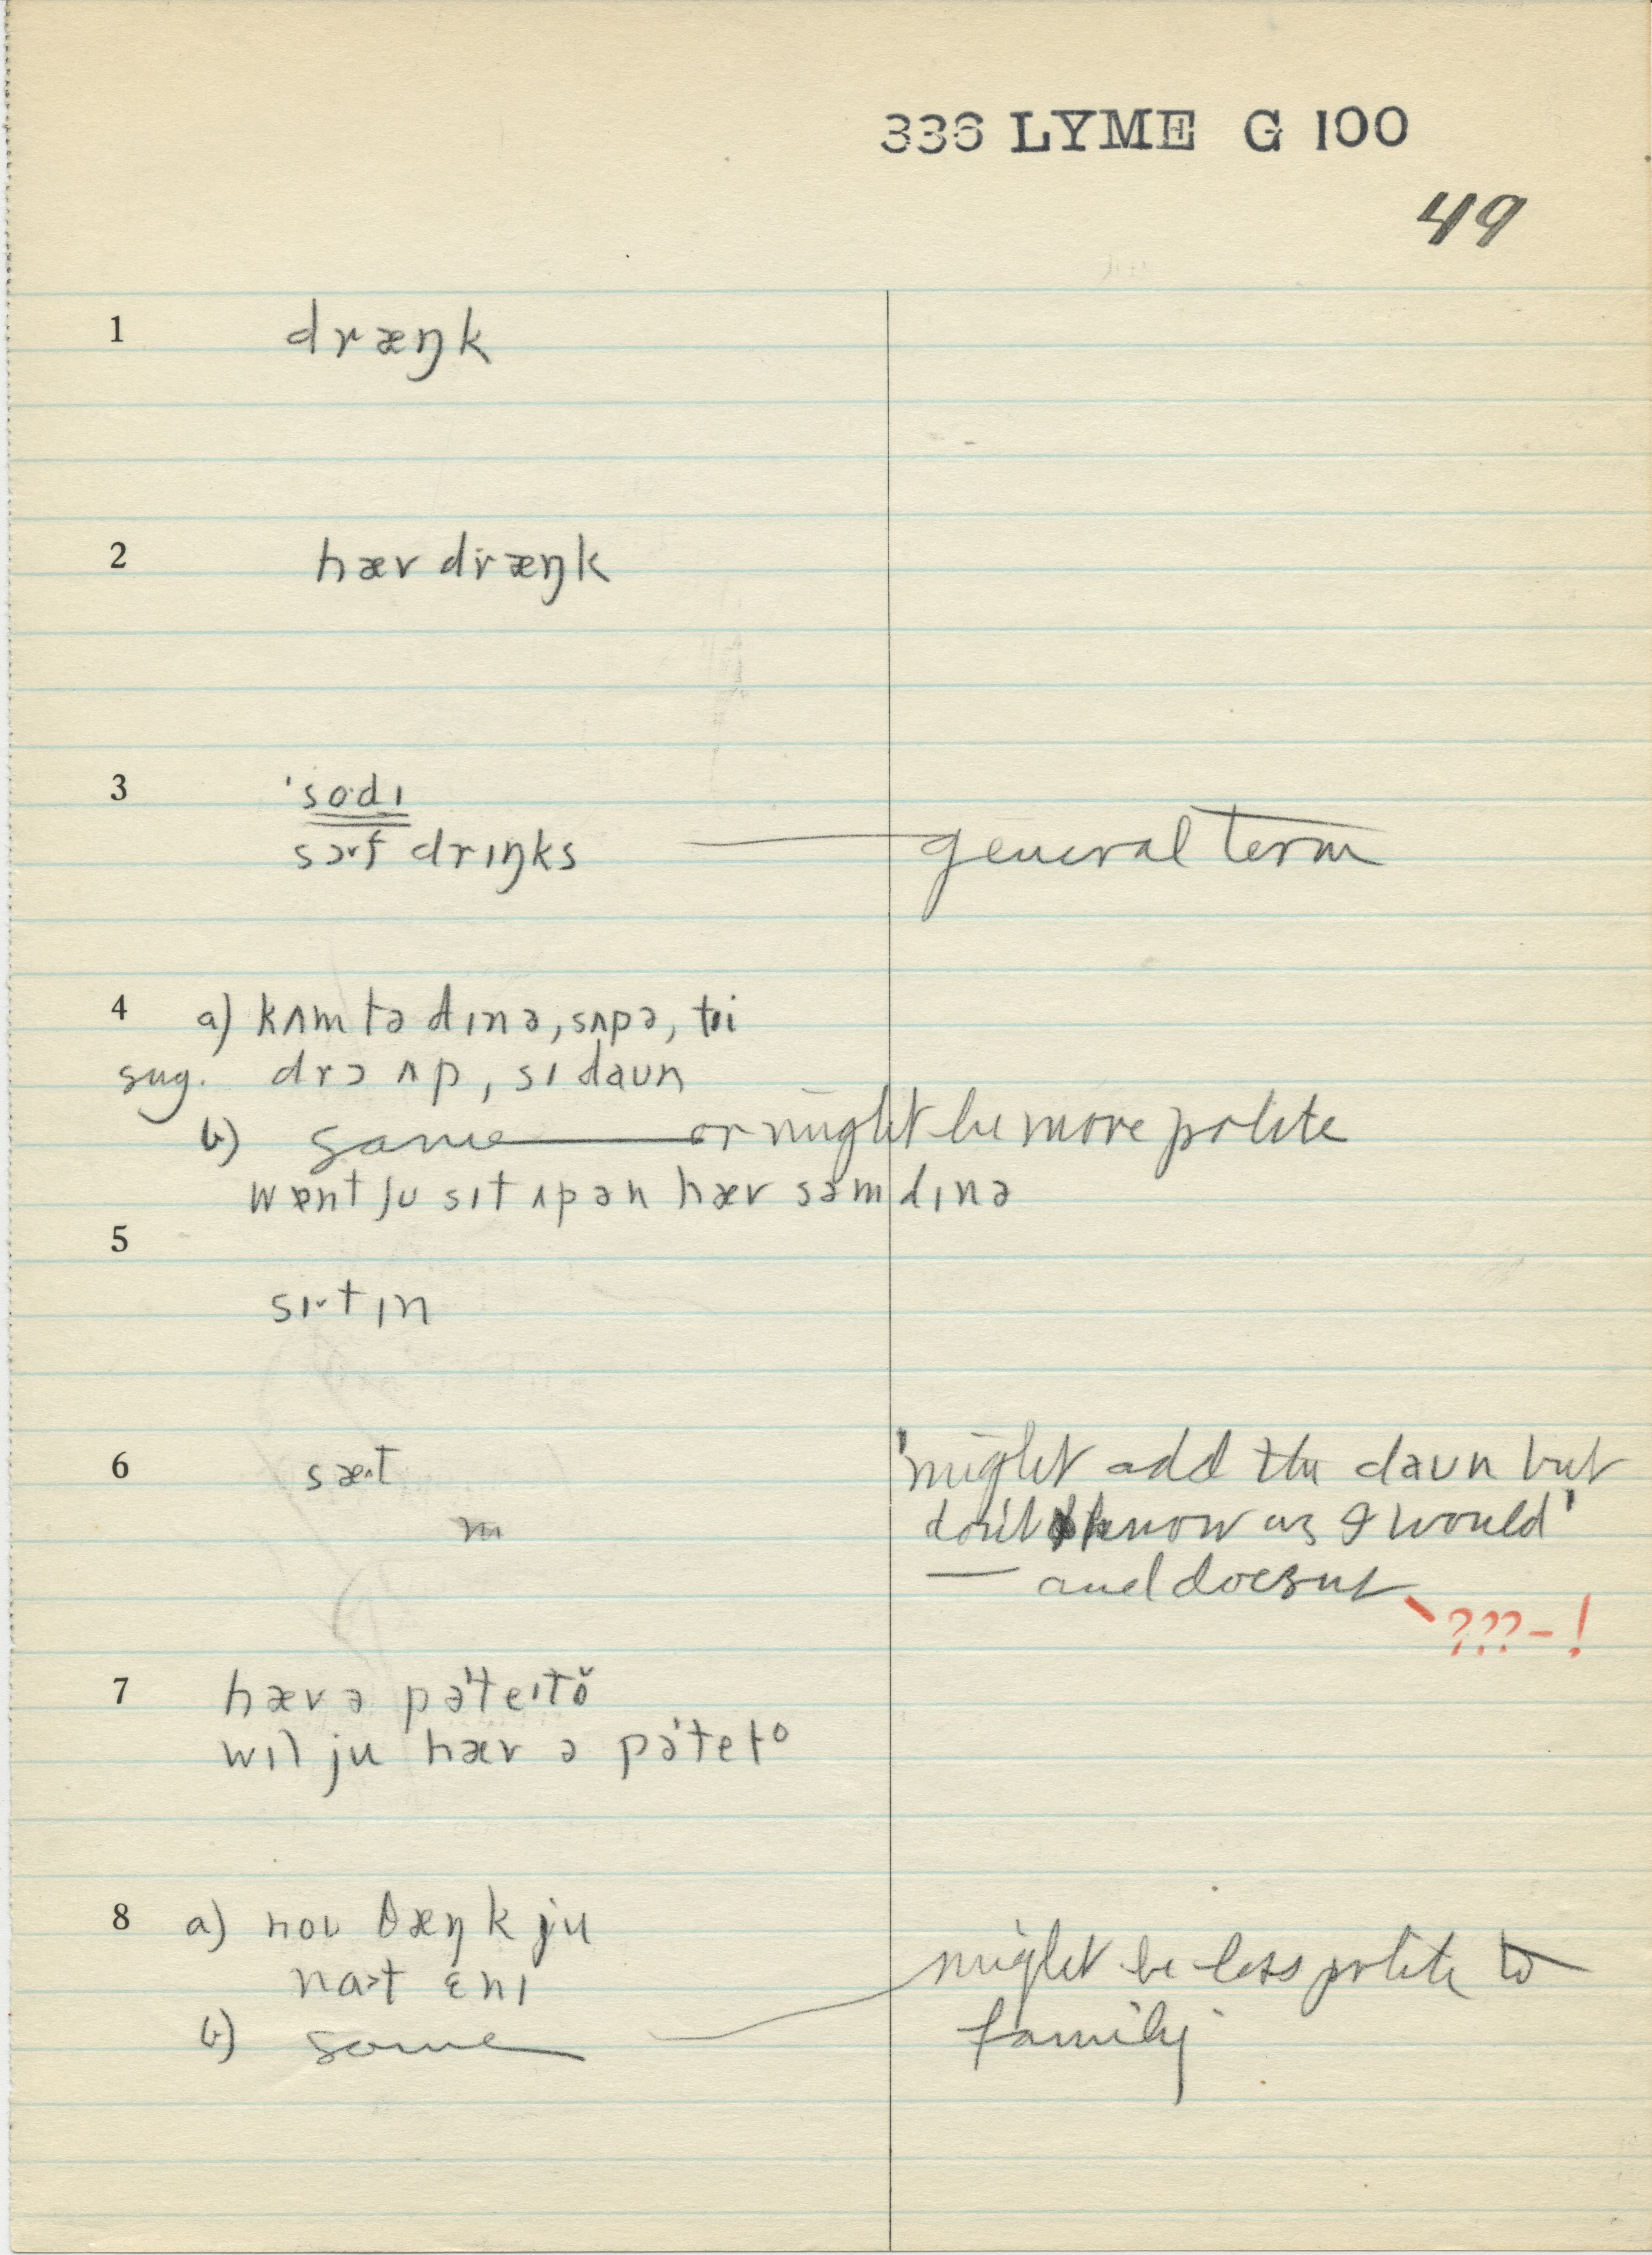 336 LYME G 100
49
1 dræŋk
2 hæv dræŋk
3 'so·dɪ
drɪŋks — general term
4 a) kʌm tə dɪnə, sʌpə, ti
sug. drɔ ʌp, sɪ daun
b) same — or might be more polite
ju sɪt ʌp ən hæv səm dɪnə
5
tɪn
6 sæ·t 'might add the daun but
don't know as I would'
— and doesn't
???-!
7 hæv ə
wɪl ju hæv ə
8 a) noʊ θæŋk ju
ɛnɪ might be less polite to
b) same family